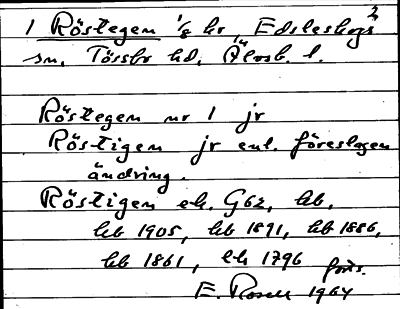 2
1 Röstegen 1/8 hr, Edsleskogs
sn, Tössbo hd, Älvsb. l.
Röstegen nr 1 jr
Röstigen jr enl. föreslagen
ändring.
Röstigen ek. G62, hb,
hb 1905, hb 1891, hb 1886,
hb 1861, ek 1796 forts.
E. Rosell 1964